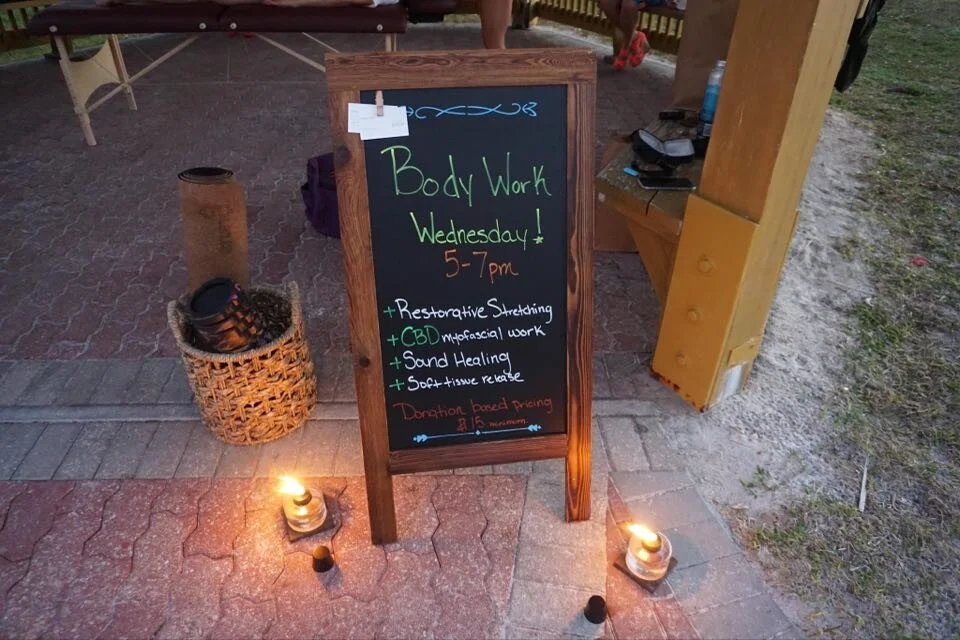 Body Work
Wednesday!
5-7pm
+Restorative Stretching
+CBD myofascial work
+Sound Healing
+Soft tissue release
Donation based pricing
$15 minimum